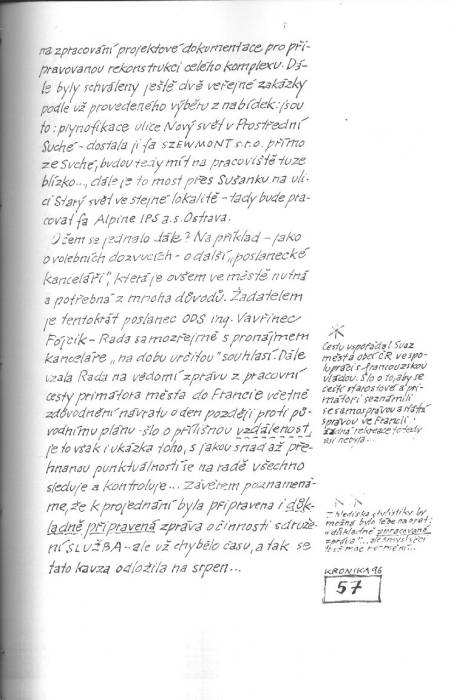 na zpracování projektové dokumentace pro při-
pravovanou rekonstrukci celého komplexu. Dá-
le byly schváleny ještě dvě veřejné zakázky
podle už provedeného výběru z nabídek: jsou
to: plynofikace ulice Nový svět v Prostřední
Suché - dostala ji fa SZEWMONT s.r.o. přímo
ze Suché, budou tedy mít na pracoviště tuze
blízko..., dále je to most přes Sušanku na uli-
ci Starý svět ve stejné lokalitě - tady bude pra-
covat fa Alpine IPS a.s. Ostrava.
O čem se jednalo dále? Na příklad - jako
o volebních dozvucích - o další „poslanecké
kanceláři", která je ovšem ve městě nutná
a potřebná z mnoha důvodů. Žadatelem
je tentokrát poslanec ODS ing. Vavřinec
Fojcik - Rada samozřejmě s pronájmem
kanceláře „na dobu určitou" souhlasí. Dále
vzala Rada na vědomí zprávu z pracovní
cesty primátora města do Francie včetně
zdůvodnění návratu o den později proti pů-
vodnímu plánu - šlo o přílišnou vzdálenost,
je to však i ukázka toho, s jakou snad až pře-
hnanou punktuálností se na radě všechno
sleduje a kontroluje... Závěrem poznamená-
me, že k projednání byla připravena i důk-
ladně připravená zpráva o činnosti sdruže-
ní SLUŽBA - ale už chybělo času, a tak se
tato kauza odložila na srpen...
Cestu uspořádal Svaz
měst a obcí ČR ve spo-
lupráci s francouzskou
vládou. Šlo o to, aby se
čeští starostové a pri-
mátoři seznámili
se samosprávou a státní
správou ve Francii
žádná rekreace to tedy
asi nebyla...
z hlediska stylistiky by
možná bylo lépe napsat:
„důkladně zpracovaná
zpráva"...
KRONIKA 96
57